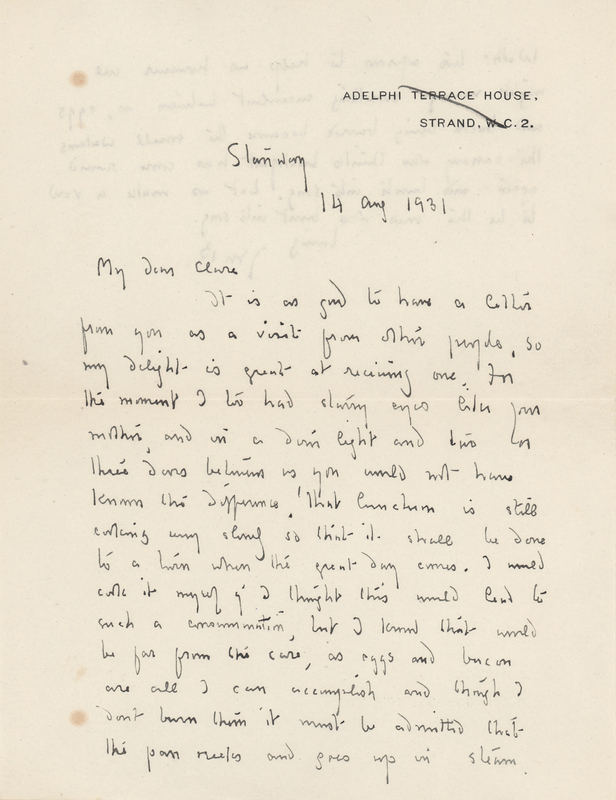 ADELPHI TERRACE HOUSE,
STRAND, W.C.2.
Stanway
14 Aug 1931
My dear Clare
It is as good to have a letter
from you as a visit from other people, so
my delight is great at receiving one. For
the moment I too had starry eyes like your
mother, and in a dim light and two or
three doors between us you would not have
known the difference. That luncheon is still
cooking away slowly so that it shall be done
to a turn when the great day comes. I would
cook it myself if I thought this would lead to
such a consummation, but I know that would
be far from the case, as eggs and bacon
are all I can accomplish and though I
don't burn them it must be admitted that
the pan reeks and goes up in steam